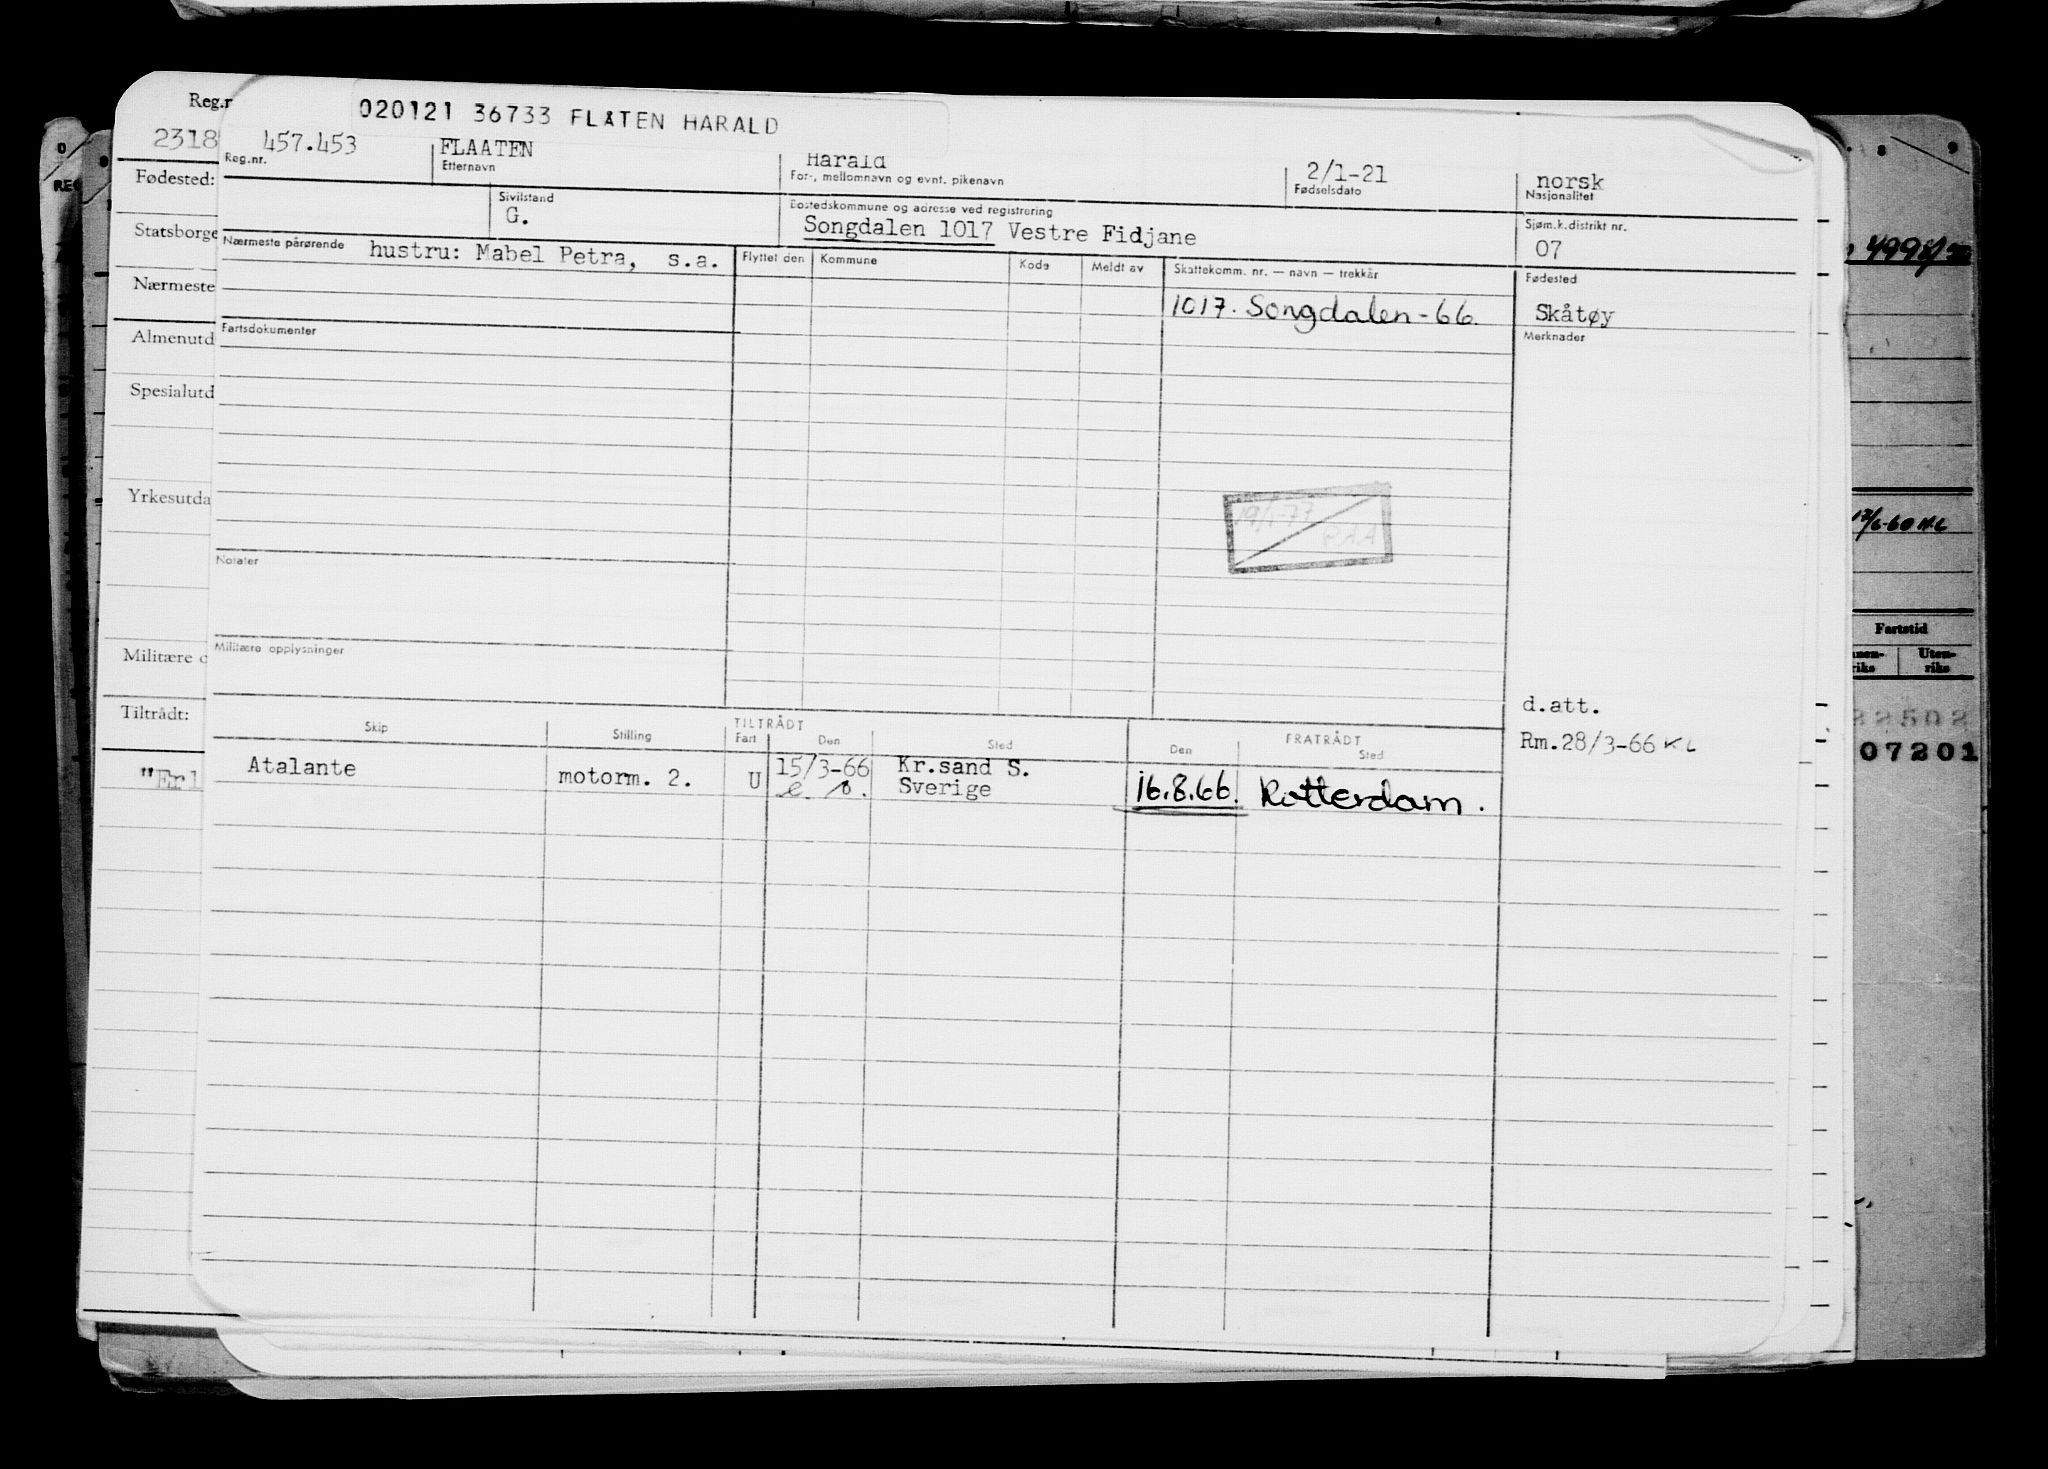 020121 36733 FLÅTEN HARALD
Reg.r
2318
457.453 FLAATEN Harald 2/1-21 norsk
Reg.nr. Etternavn For-, mellomnavn og evnt. pikenavn Fødselsdato Nasjonalitet
Fødested:
Sivilstand Bostedskommune og adresse ved registrering Sjøm.k.distrikt nr.
G. Songdalen 1017 Vestre Fidjane 07
Statsborge
Nærmeste pårørende hustru: Mabel Petra, s.a. Flyttet den Kommune Kode Meldt av Skattekomm. nr. — navn — trekkår Fødested
4998/
Nærmeste
1017. Songdalen-66. Skåtøy
Almenutd
Fartsdokumenter Merknader
Spesialutd
Yrkesutda
19/1-77
RAA
12/6-60 KL
Notater
Fartstid
Militære o
Militære opplysninger
nen-rike Uten-rike
d.att.
Tiltrådt:
22502
TILTRÅDT FRATRÅDT
Skip Stilling Fart Den Sted Den Sted
Rm.28/3-66 KL
07201
"Erl
Atalante motorm. 2. U 15/3-66 Kr.sand S. 16.8.66. Rotterdam.
e. b. Sverige